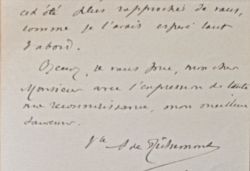 eut été plus rapproché de vous,
comme je l'avais espéré tout
d'abord.
Agréez, je vous prie, mon cher
Monsieur avec l'expression de toute
ma reconnaissance, mon meilleur
souvenir.
de Richemond